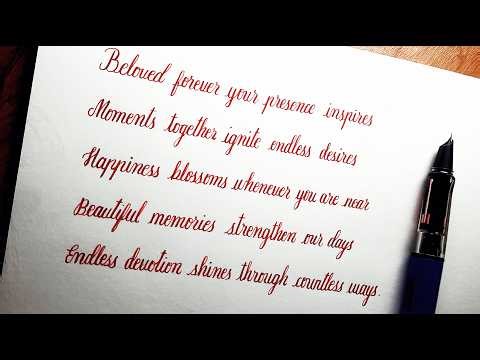 Beloved forever your presence inspires
Moments together ignite endless desires
Happiness blossoms whenever you are near
Beautiful memories strengthen our days
Endless devotion shines through countless ways.